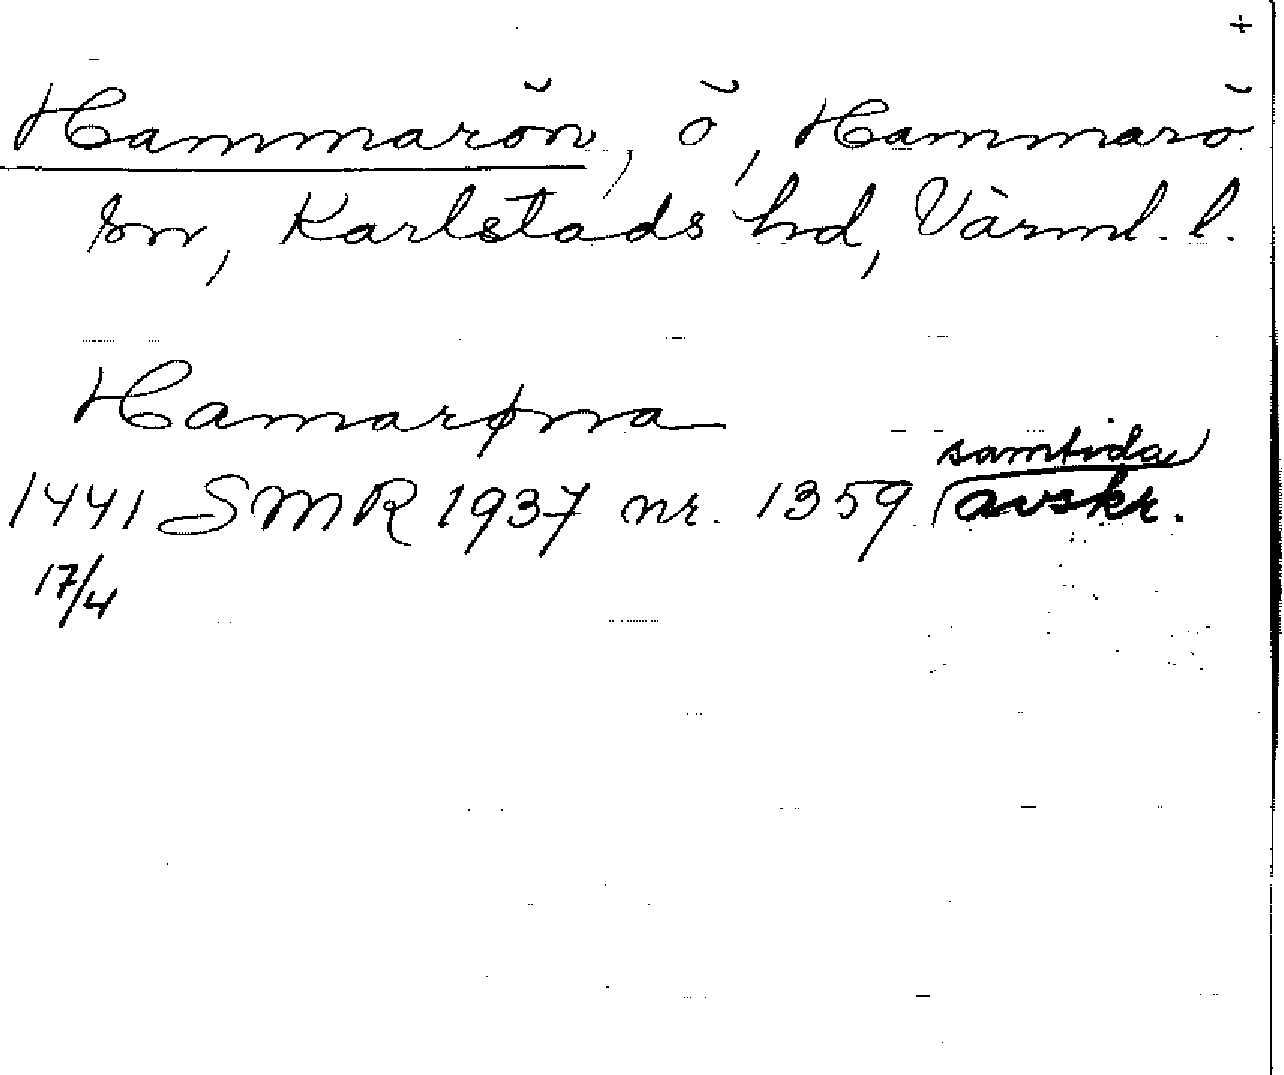 +
Hammarön, ö, Hammarö
sn, Karlstads hd, Värml. l.
Hamarøna
1441 SMR 1937 nr. 1359 (samtida
avskr.
17/4